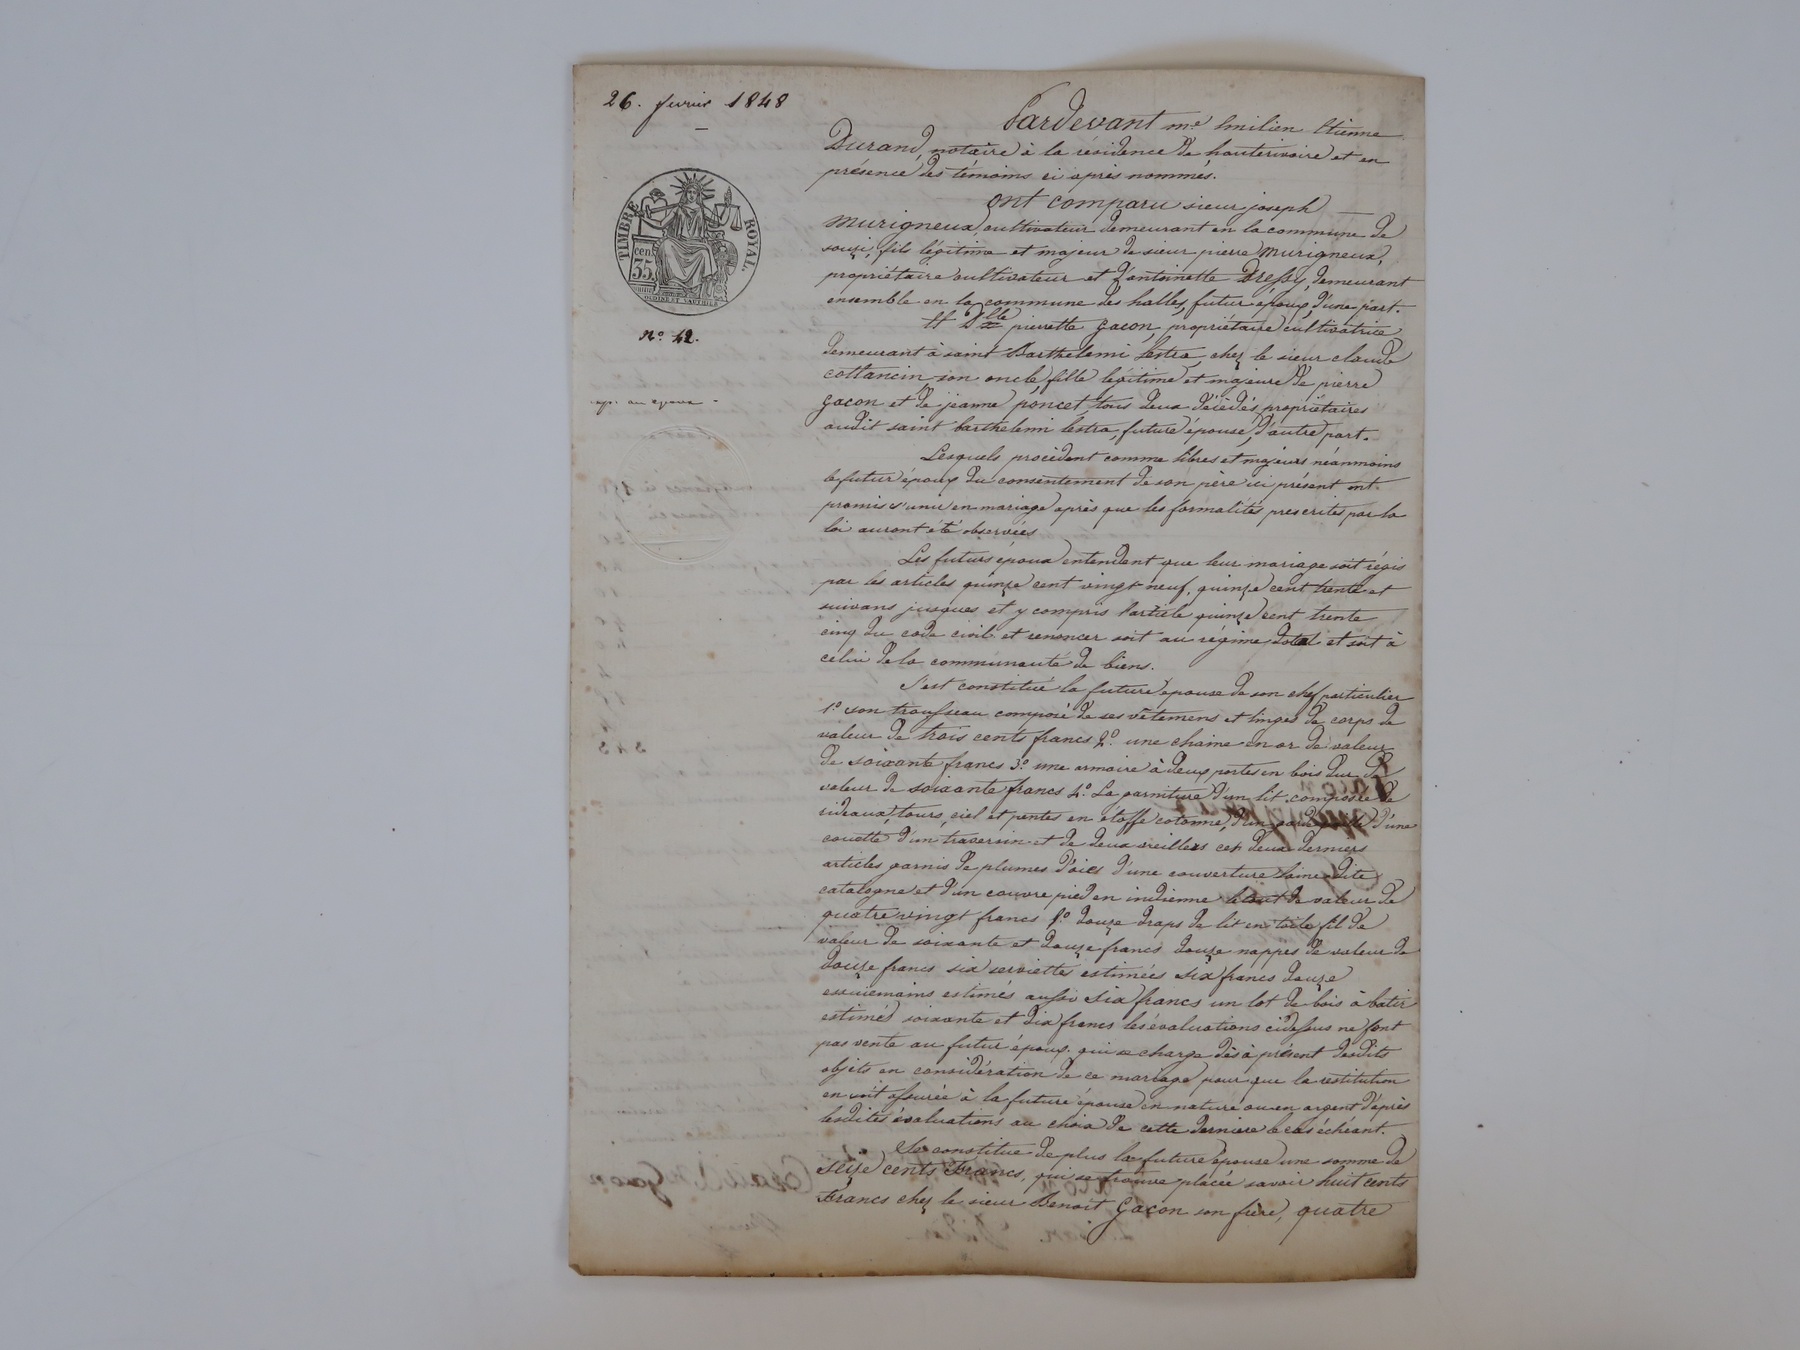 26. fevrier 1848
TIMBRE ROYAL.
cen. 35
N.º 42.
Pardevant m.e Emilien Etienne
Durand, notaire à la résidence de hauterivoire et en
présence des témoins ci après nommés.
ont comparu sieur joseph
Murigneux, cultivateur demeurant en la commune de
souzi, fils légitime et majeur de sieur pierre Murigneux,
propriétaire cultivateur et d'antoinette Dressy, demeurant
ensemble en la commune des halles, futur époux, d'une part.
Et Dlle pierrette gacon, propriétaire cultivatrice
demeurant à saint Barthelemi Lestra, chez le sieur claude
cottancin son oncle, fille légitime et majeure de pierre
gacon et de jeanne poncet, tous deux décédés, propriétaires
audit saint barthelemi lestra, future épouse, d'autre part.
Lesquels procédent comme libres et majeurs néanmoins
le futur époux du consentement de son père ici présent ont
promis s'unir en mariage après que les formalités prescrites par la
loi auront été observées
Les futurs époux entendent que leur mariage soit régis
par les articles quinze cent vingt neuf, quinze cent trente et
suivans jusques et y compris l'article quinze cent trente
cinq du code civil et renoncer soit au régime dotal et soit à
celui de la communauté de biens.
S'est constitué la future épouse de son chef particulier
1.º son trousseau composé de ses vêtemens et linges de corps de
valeur de trois cents francs 2.º une chaine en or de valeur
de soixante francs 3.º une armoire à deux portes en bois dur de
valeur de soixante francs 4.º La garniture d'un lit composée de
rideaux, tours, ciel et pentes en étoffe cotonne, d'un garde paille d'une
couette, d'un traversin et de deux oreillers ces deux derniers
articles garnis de plumes d'oies d'une couverture laine dite
catalogne et d'un couvre pied en indienne le tout de valeur de
quatre vingt francs 5.º douze draps de lit en toile fil de
valeur de soixante et douze francs douze nappes de valeur de
douze francs six serviettes estimées six francs douze
essuiemains estimés aussi six francs un lot de bois à batir
estimé soixante et dix francs les évaluations cidessus ne font
pas vente au futur époux qui se charge dès à présent desdits
objets en considération de ce mariage pour que la restitution
en soit assurée à la future épouse en nature ou en argent d'après
lesdites évaluations au choix de cette derniere le cas échéant.
Se constitue de plus la future épouse une somme de
seize cents francs, qui se trouve placée savoir huit cents
francs chez le sieur Benoit Gacon son frère, quatre